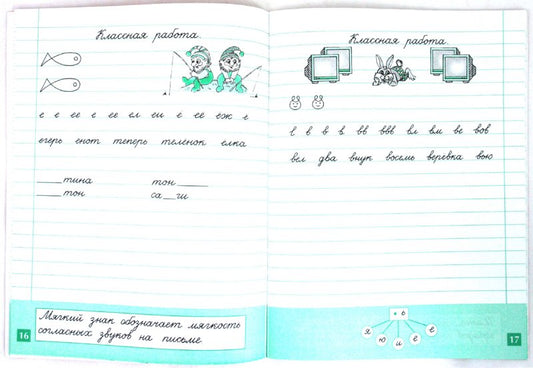 Классная работа.
е е ее е ее ел еш е ее еж е
егерь енот теперь теленок елка
____тина тон____
____тон са__ги
Мягкий знак обозначает мягкость
согласных звуков на письме
16
Классная работа.
в в в в вв ввв вл вм ве вов
вел два внук восемь веревка вою
ь
я ю и е ё
17